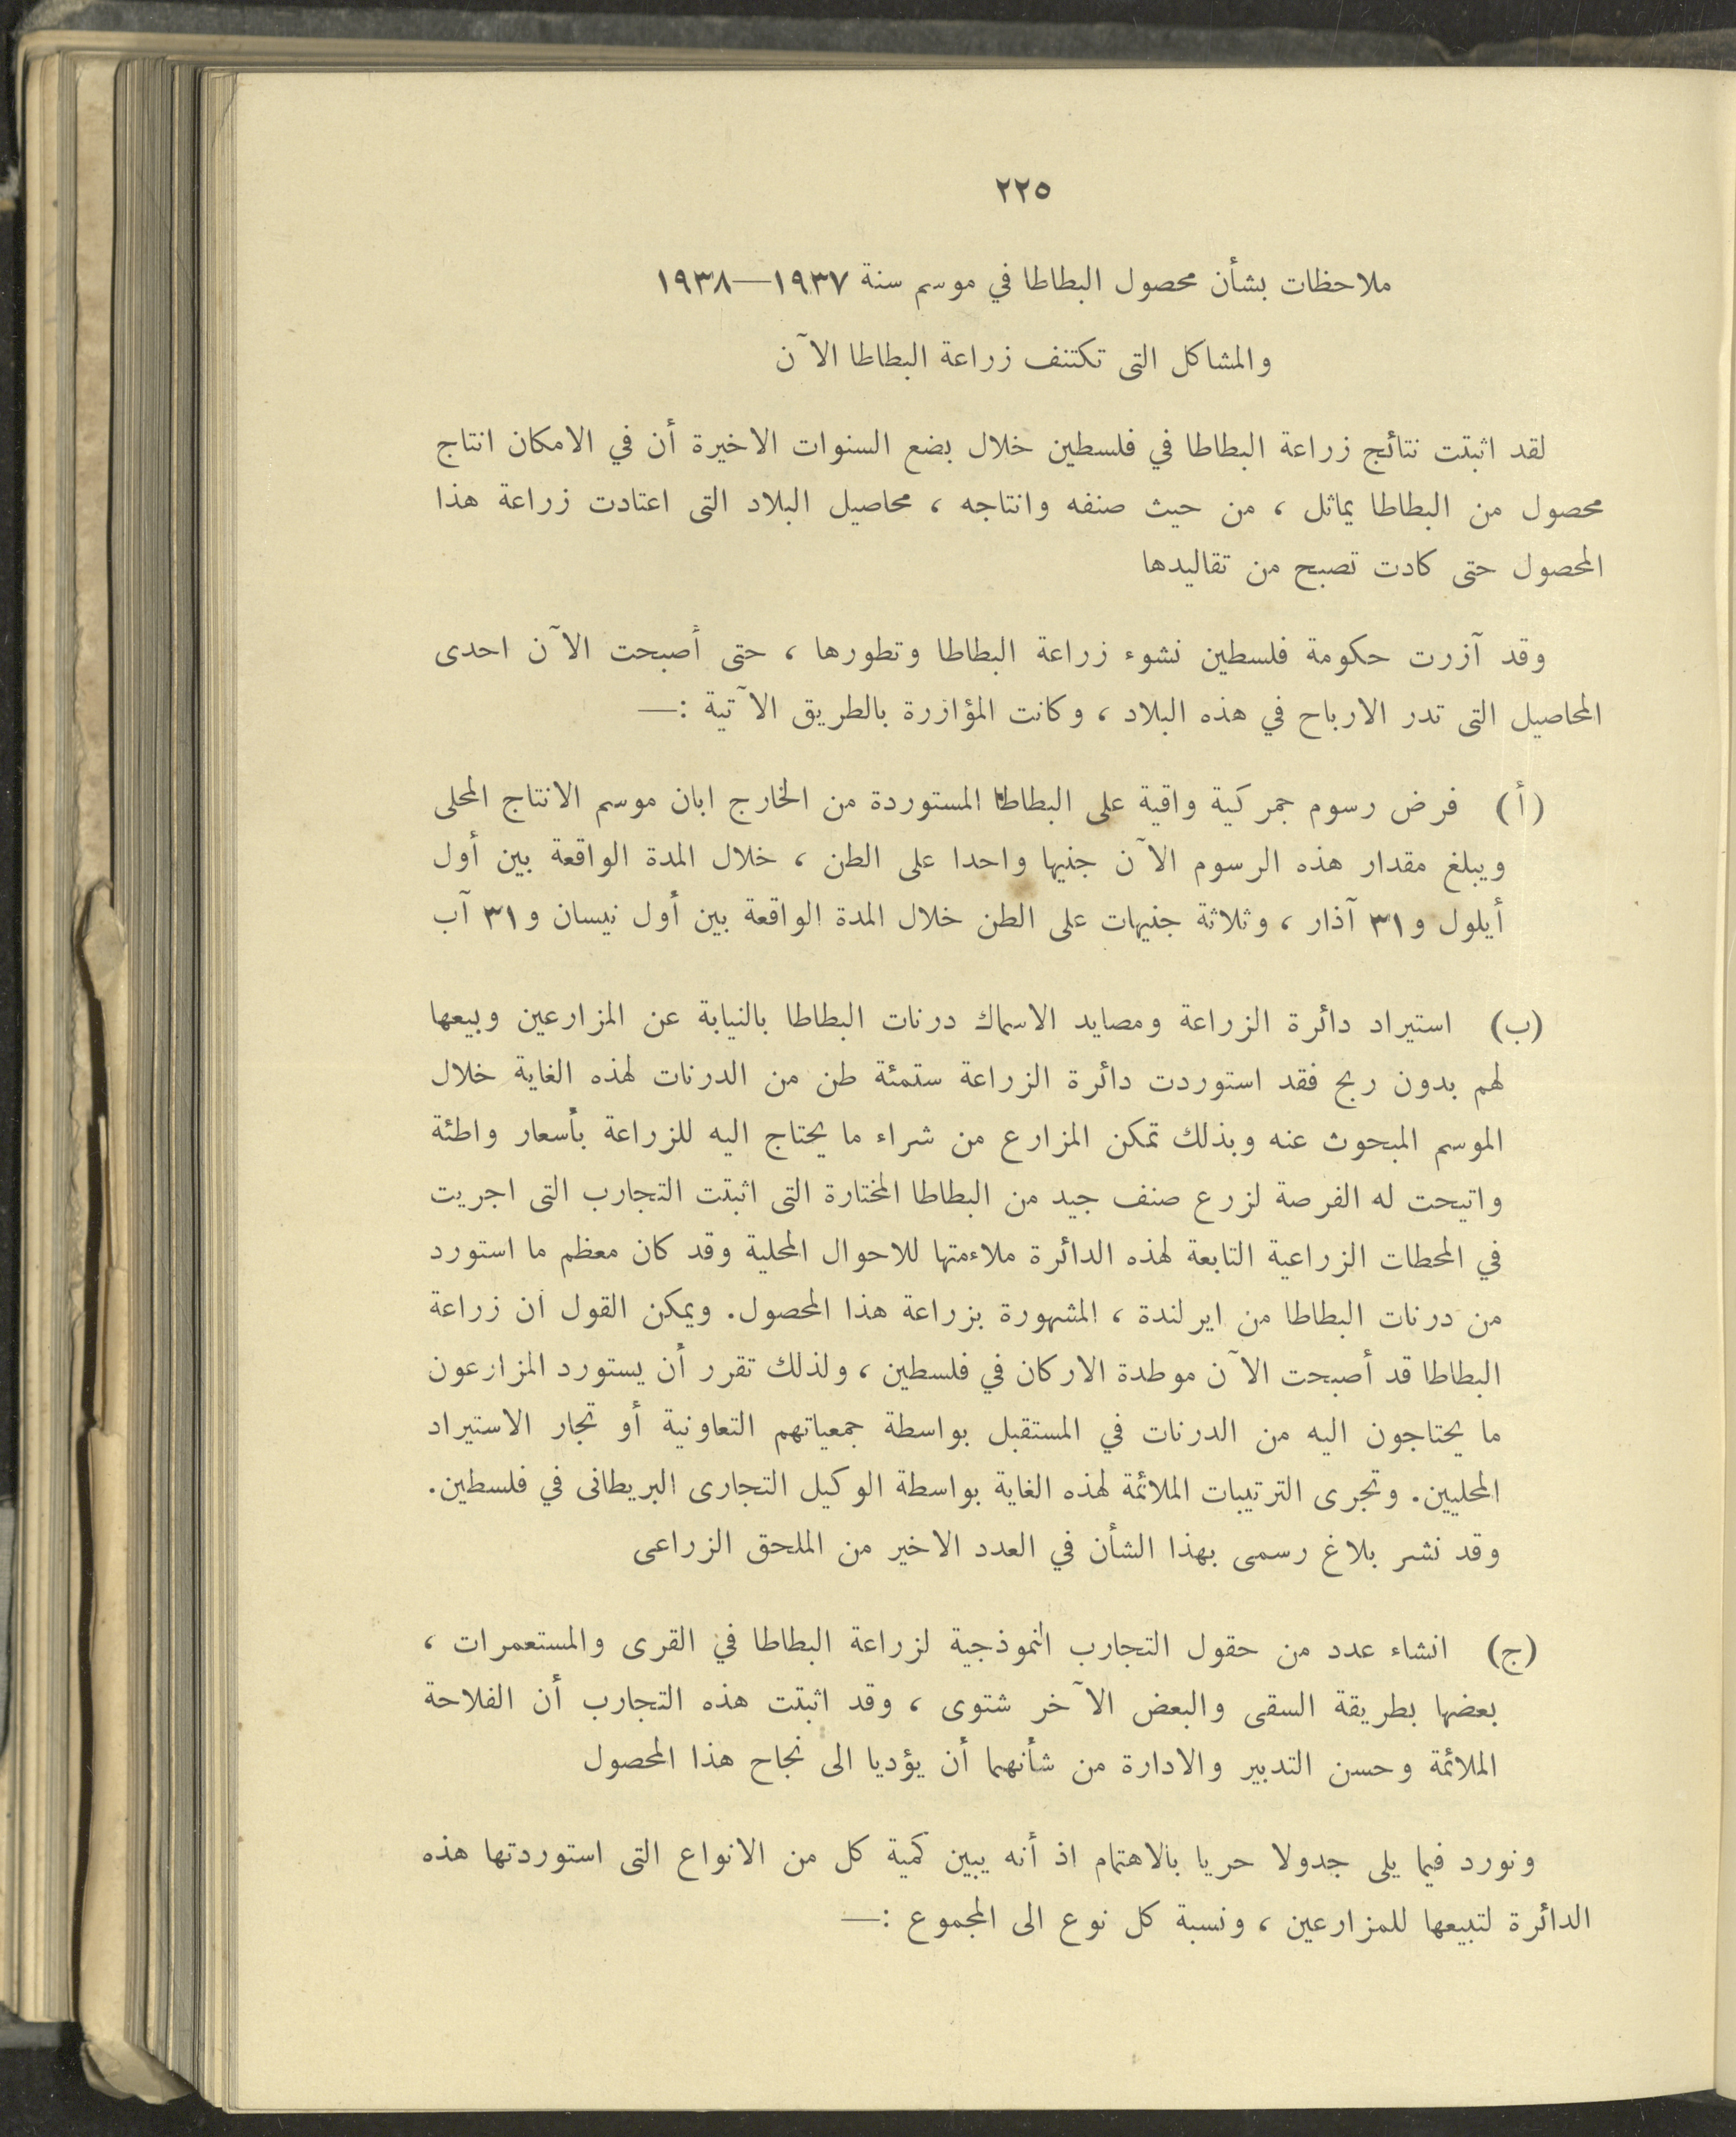 ٢٢٥
ملاحظات بشأن محصول البطاطا في موسم سنة ١٩٣٧—١٩٣٨
والمشاكل التى تكتنف زراعة البطاطا الآن
لقد اثبتت نتائج زراعة البطاطا في فلسطين خلال بضع السنوات الاخيرة أن في الامكان انتاج
محصول من البطاطا يماثل ، من حيث صنفه وانتاجه ، محاصيل البلاد التى اعتادت زراعة هذا
المحصول حتى كادت تصبح من تقاليدها
وقد آزرت حكومة فلسطين نشوء زراعة البطاطا وتطورها ، حتى أصبحت الآن احدى
المحاصيل التى تدر الارباح في هذه البلاد ، وكانت المؤازرة بالطريق الآتية :—
(أ) فرض رسوم جمركية واقية على البطاطا المستوردة من الخارج ابان موسم الانتاج المحلى
ويبلغ مقدار هذه الرسوم الآن جنيها واحدا على الطن ، خلال المدة الواقعة بين أول
أيلول و٣١ آذار ، وثلاثة جنيهات على الطن خلال المدة الواقعة بين أول نيسان و٣١ آب
(ب) استيراد دائرة الزراعة ومصايد الاسماك درنات البطاطا بالنيابة عن المزارعين وبيعها
لهم بدون ربح فقد استوردت دائرة الزراعة ستمئة طن من الدرنات لهذه الغاية خلال
الموسم المبحوث عنه وبذلك تمكن المزارع من شراء ما يحتاج اليه للزراعة بأسعار واطئة
واتيحت له الفرصة لزرع صنف جيد من البطاطا المختارة التى اثبتت التجارب التى اجريت
في المحطات الزراعية التابعة لهذه الدائرة ملاءمتها للاحوال المحلية وقد كان معظم ما استورد
من درنات البطاطا من ايرلندة ، المشهورة بزراعة هذا المحصول. ويمكن القول أن زراعة
البطاطا قد أصبحت الآن موطدة الاركان في فلسطين ، ولذلك تقرر أن يستورد المزارعون
ما يحتاجون اليه من الدرنات في المستقبل بواسطة جمعياتهم التعاونية أو تجار الاستيراد
المحليين. وتجرى الترتيبات الملائمة لهذه الغاية بواسطة الوكيل التجارى البريطانى في فلسطين.
وقد نشر بلاغ رسمى بهذا الشأن في العدد الاخير من الملحق الزراعى
(ج) انشاء عدد من حقول التجارب النموذجية لزراعة البطاطا في القرى والمستعمرات ،
بعضها بطريقة السقى والبعض الآخر شتوى ، وقد اثبتت هذه التجارب أن الفلاحة
الملائمة وحسن التدبير والادارة من شأنهما أن يؤديا الى نجاح هذا المحصول
ونورد فيما يلى جدولا حريا بالاهتمام اذ أنه يبين كمية كل من الانواع التى استوردتها هذه
الدائرة لتبيعها للمزارعين ، ونسبة كل نوع الى المجموع :—